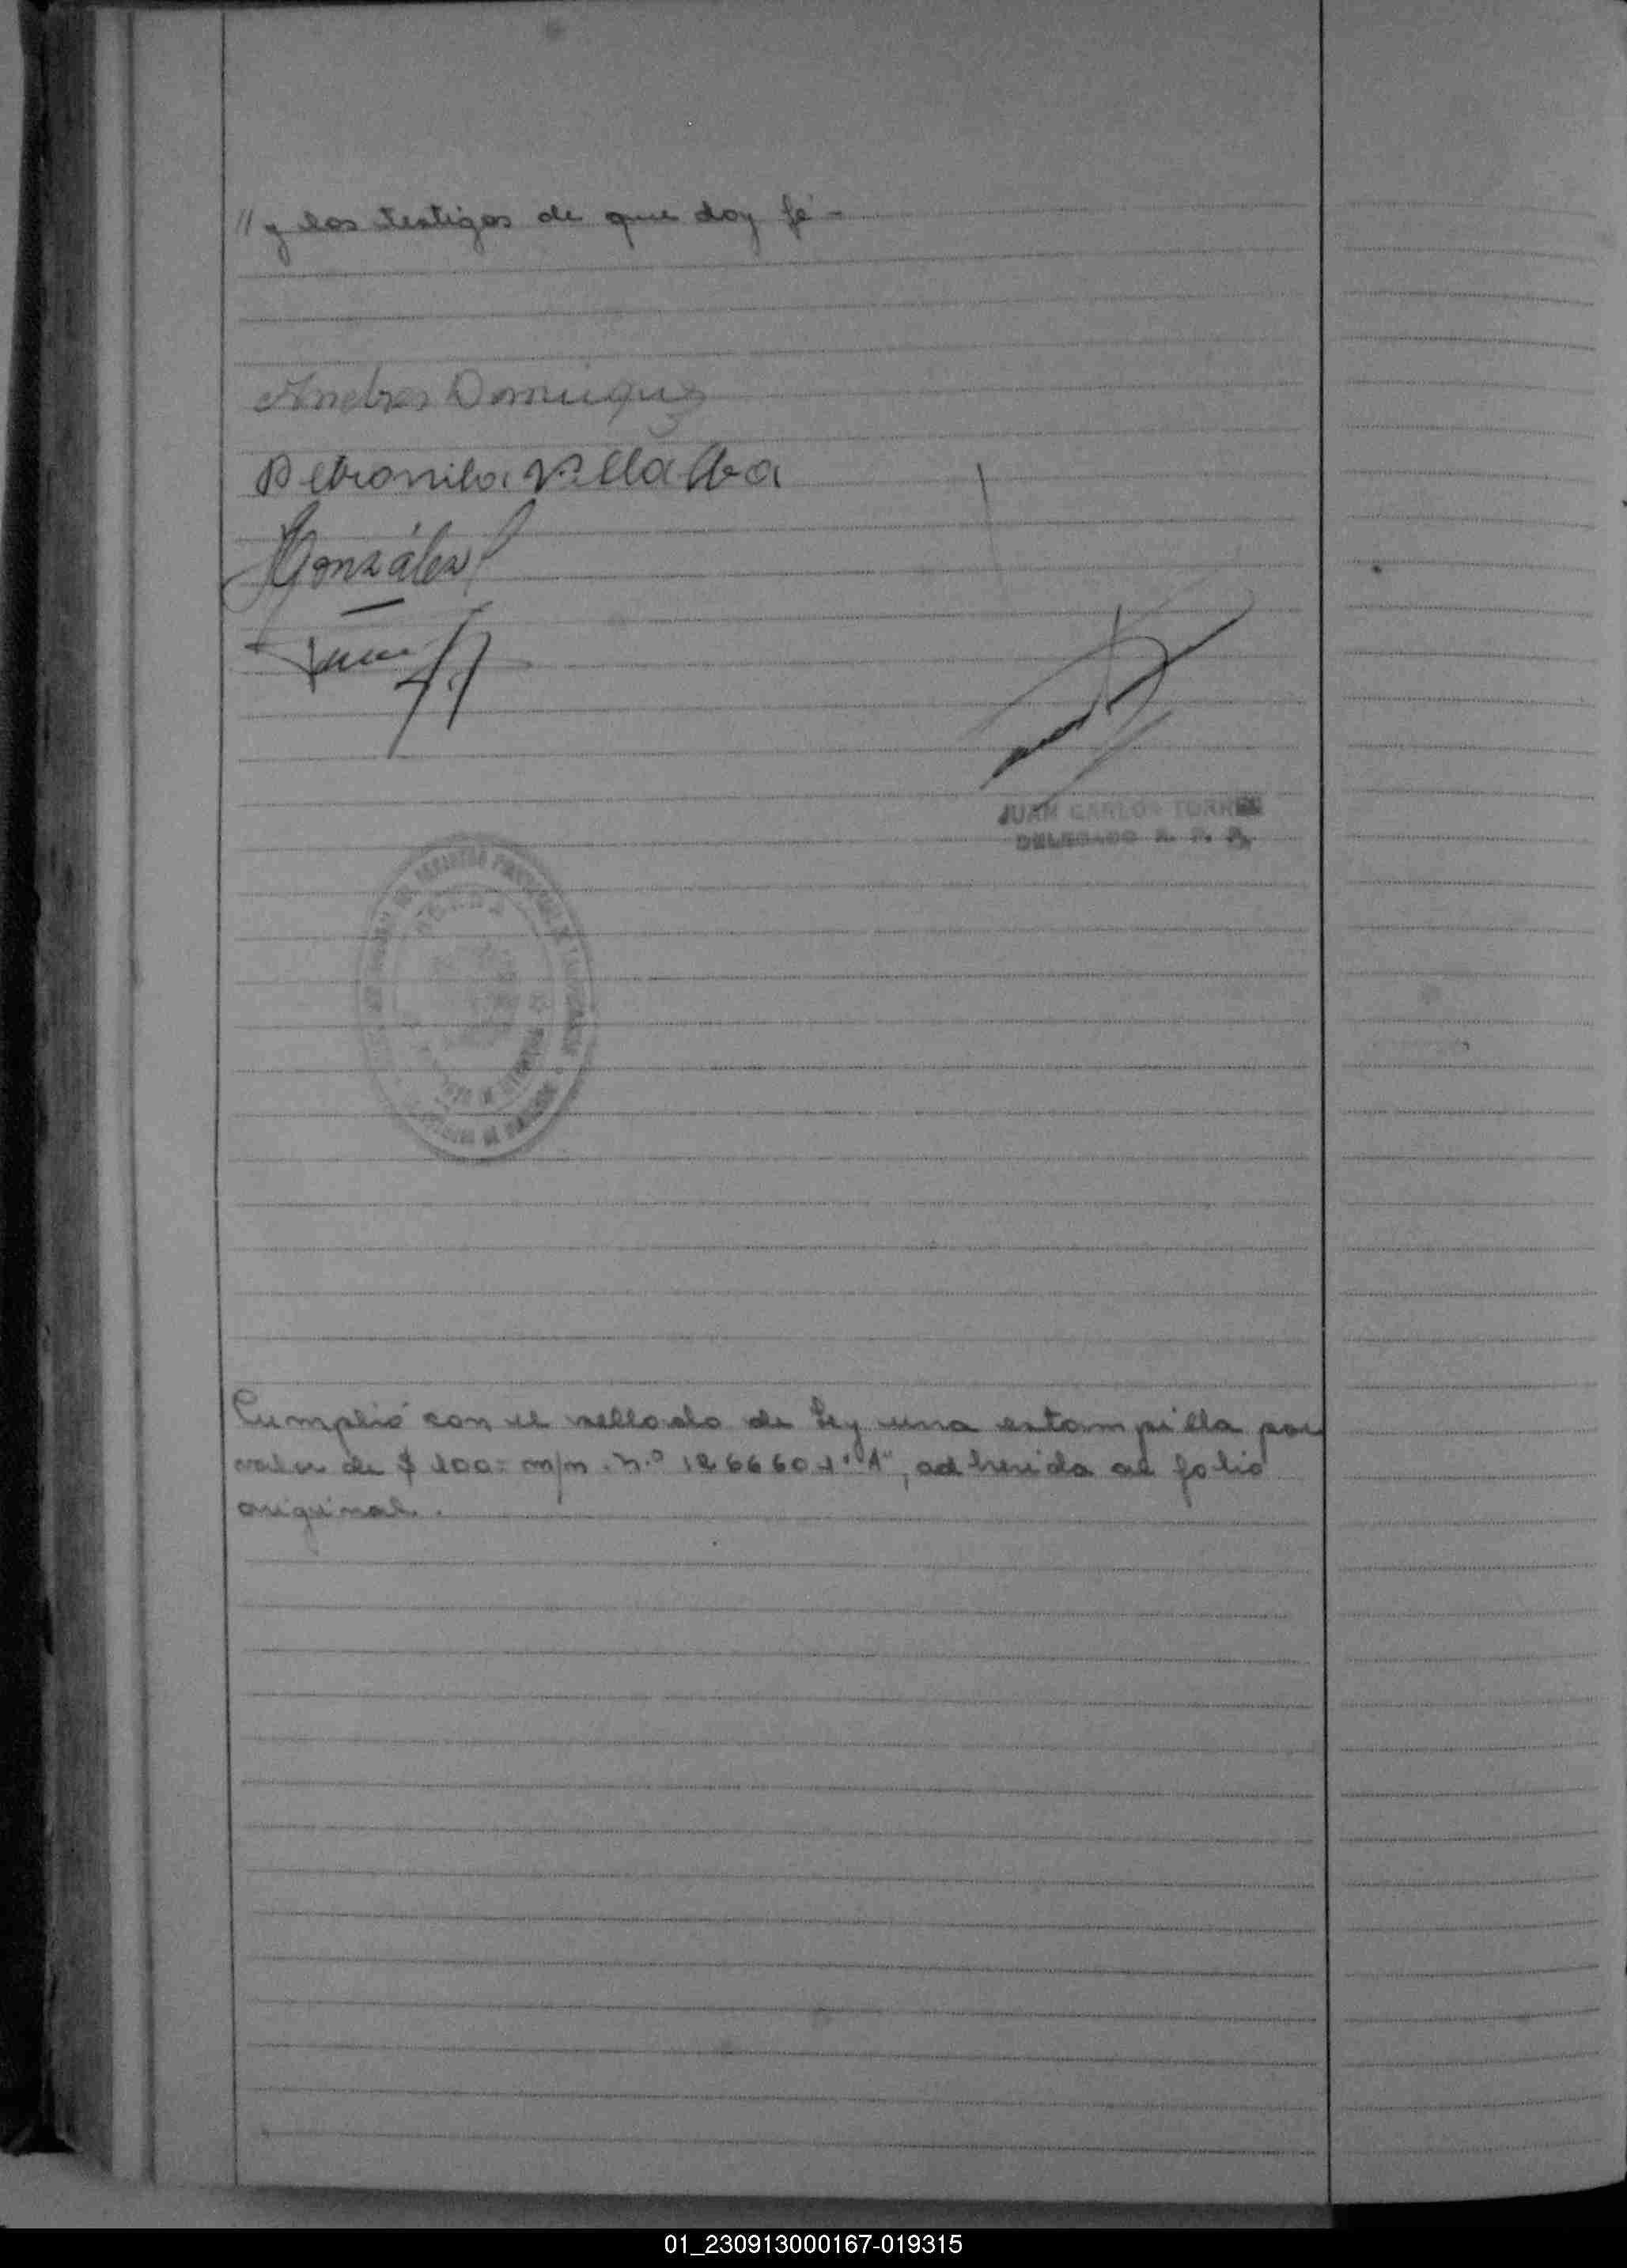 // y los testigos de que doy fé -
Andres Dominguez
Petronila Villalba
González
JUAN CARLOS TORRES
DELEGADO R. P. P.
Cumplió con el sellado de Ley una estampilla por
valor de $ 100= m/n. N.º 1266601 "A", adherida al folio
original.
01_230913000167-019315